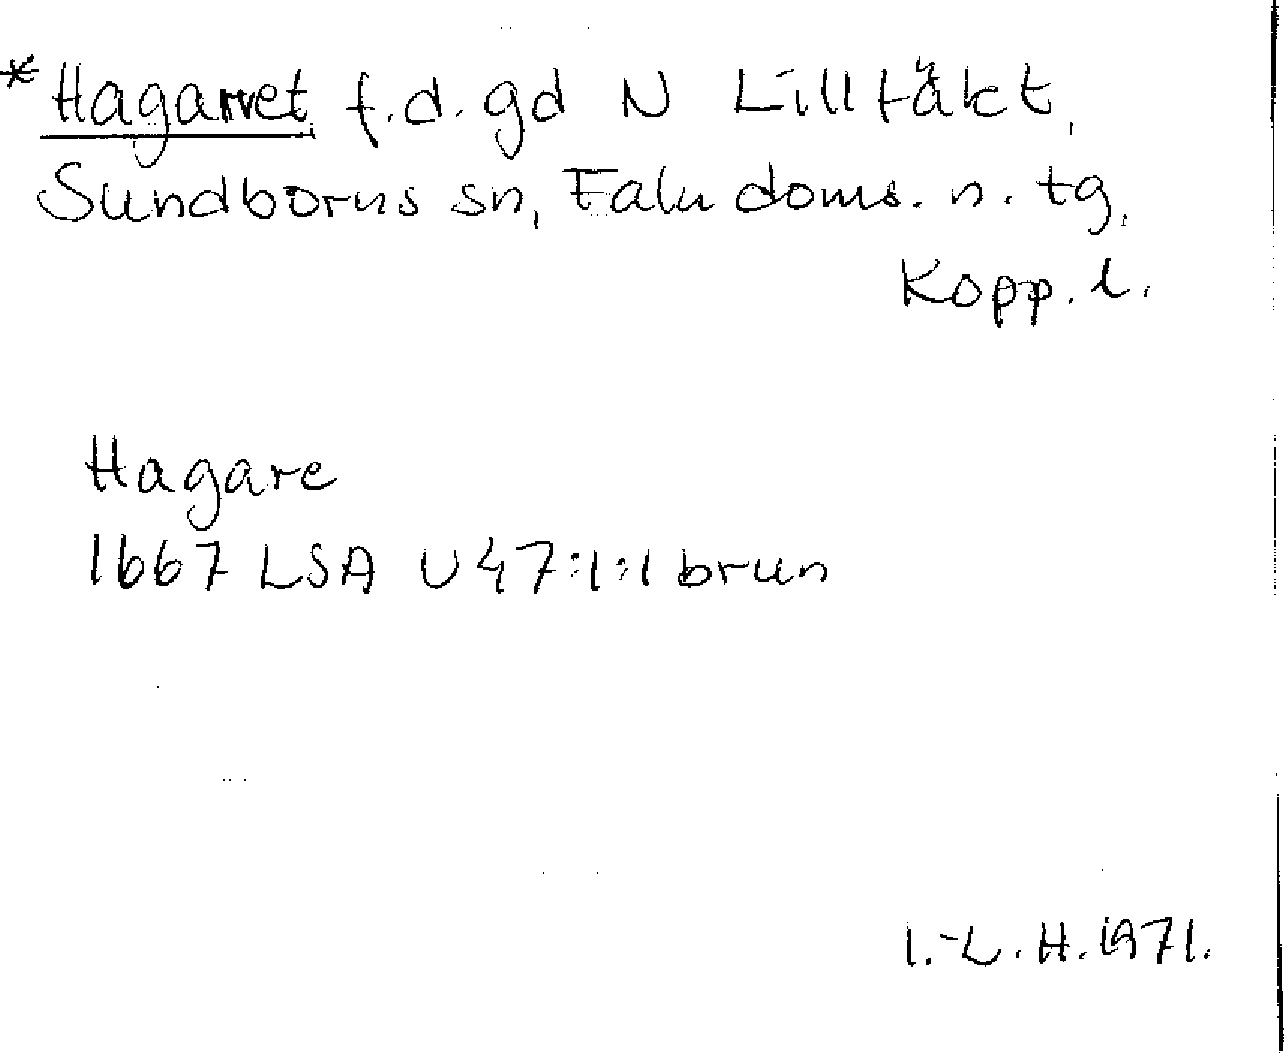 *Hagarvet f.d. gd N Lilltäkt,
Sundborns sn, Falu doms. n. tg,
Kopp. l.
Hagare
1667 LSA U47:1:1 brun
I.-L. H. 1971.